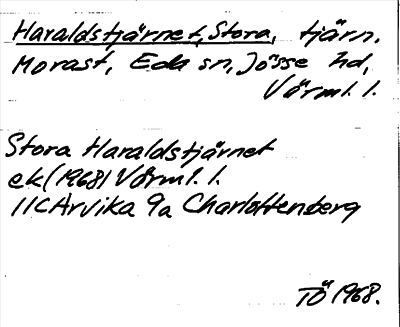 Haraldstjärnet, Stora, tjärn.
Morast, Eda sn, Jösse hd,
Värml. l.
Stora Haraldstjärnet
ek (1968) Värml. l.
11C Arvika 9a Charlottenberg
TÖ 1968.